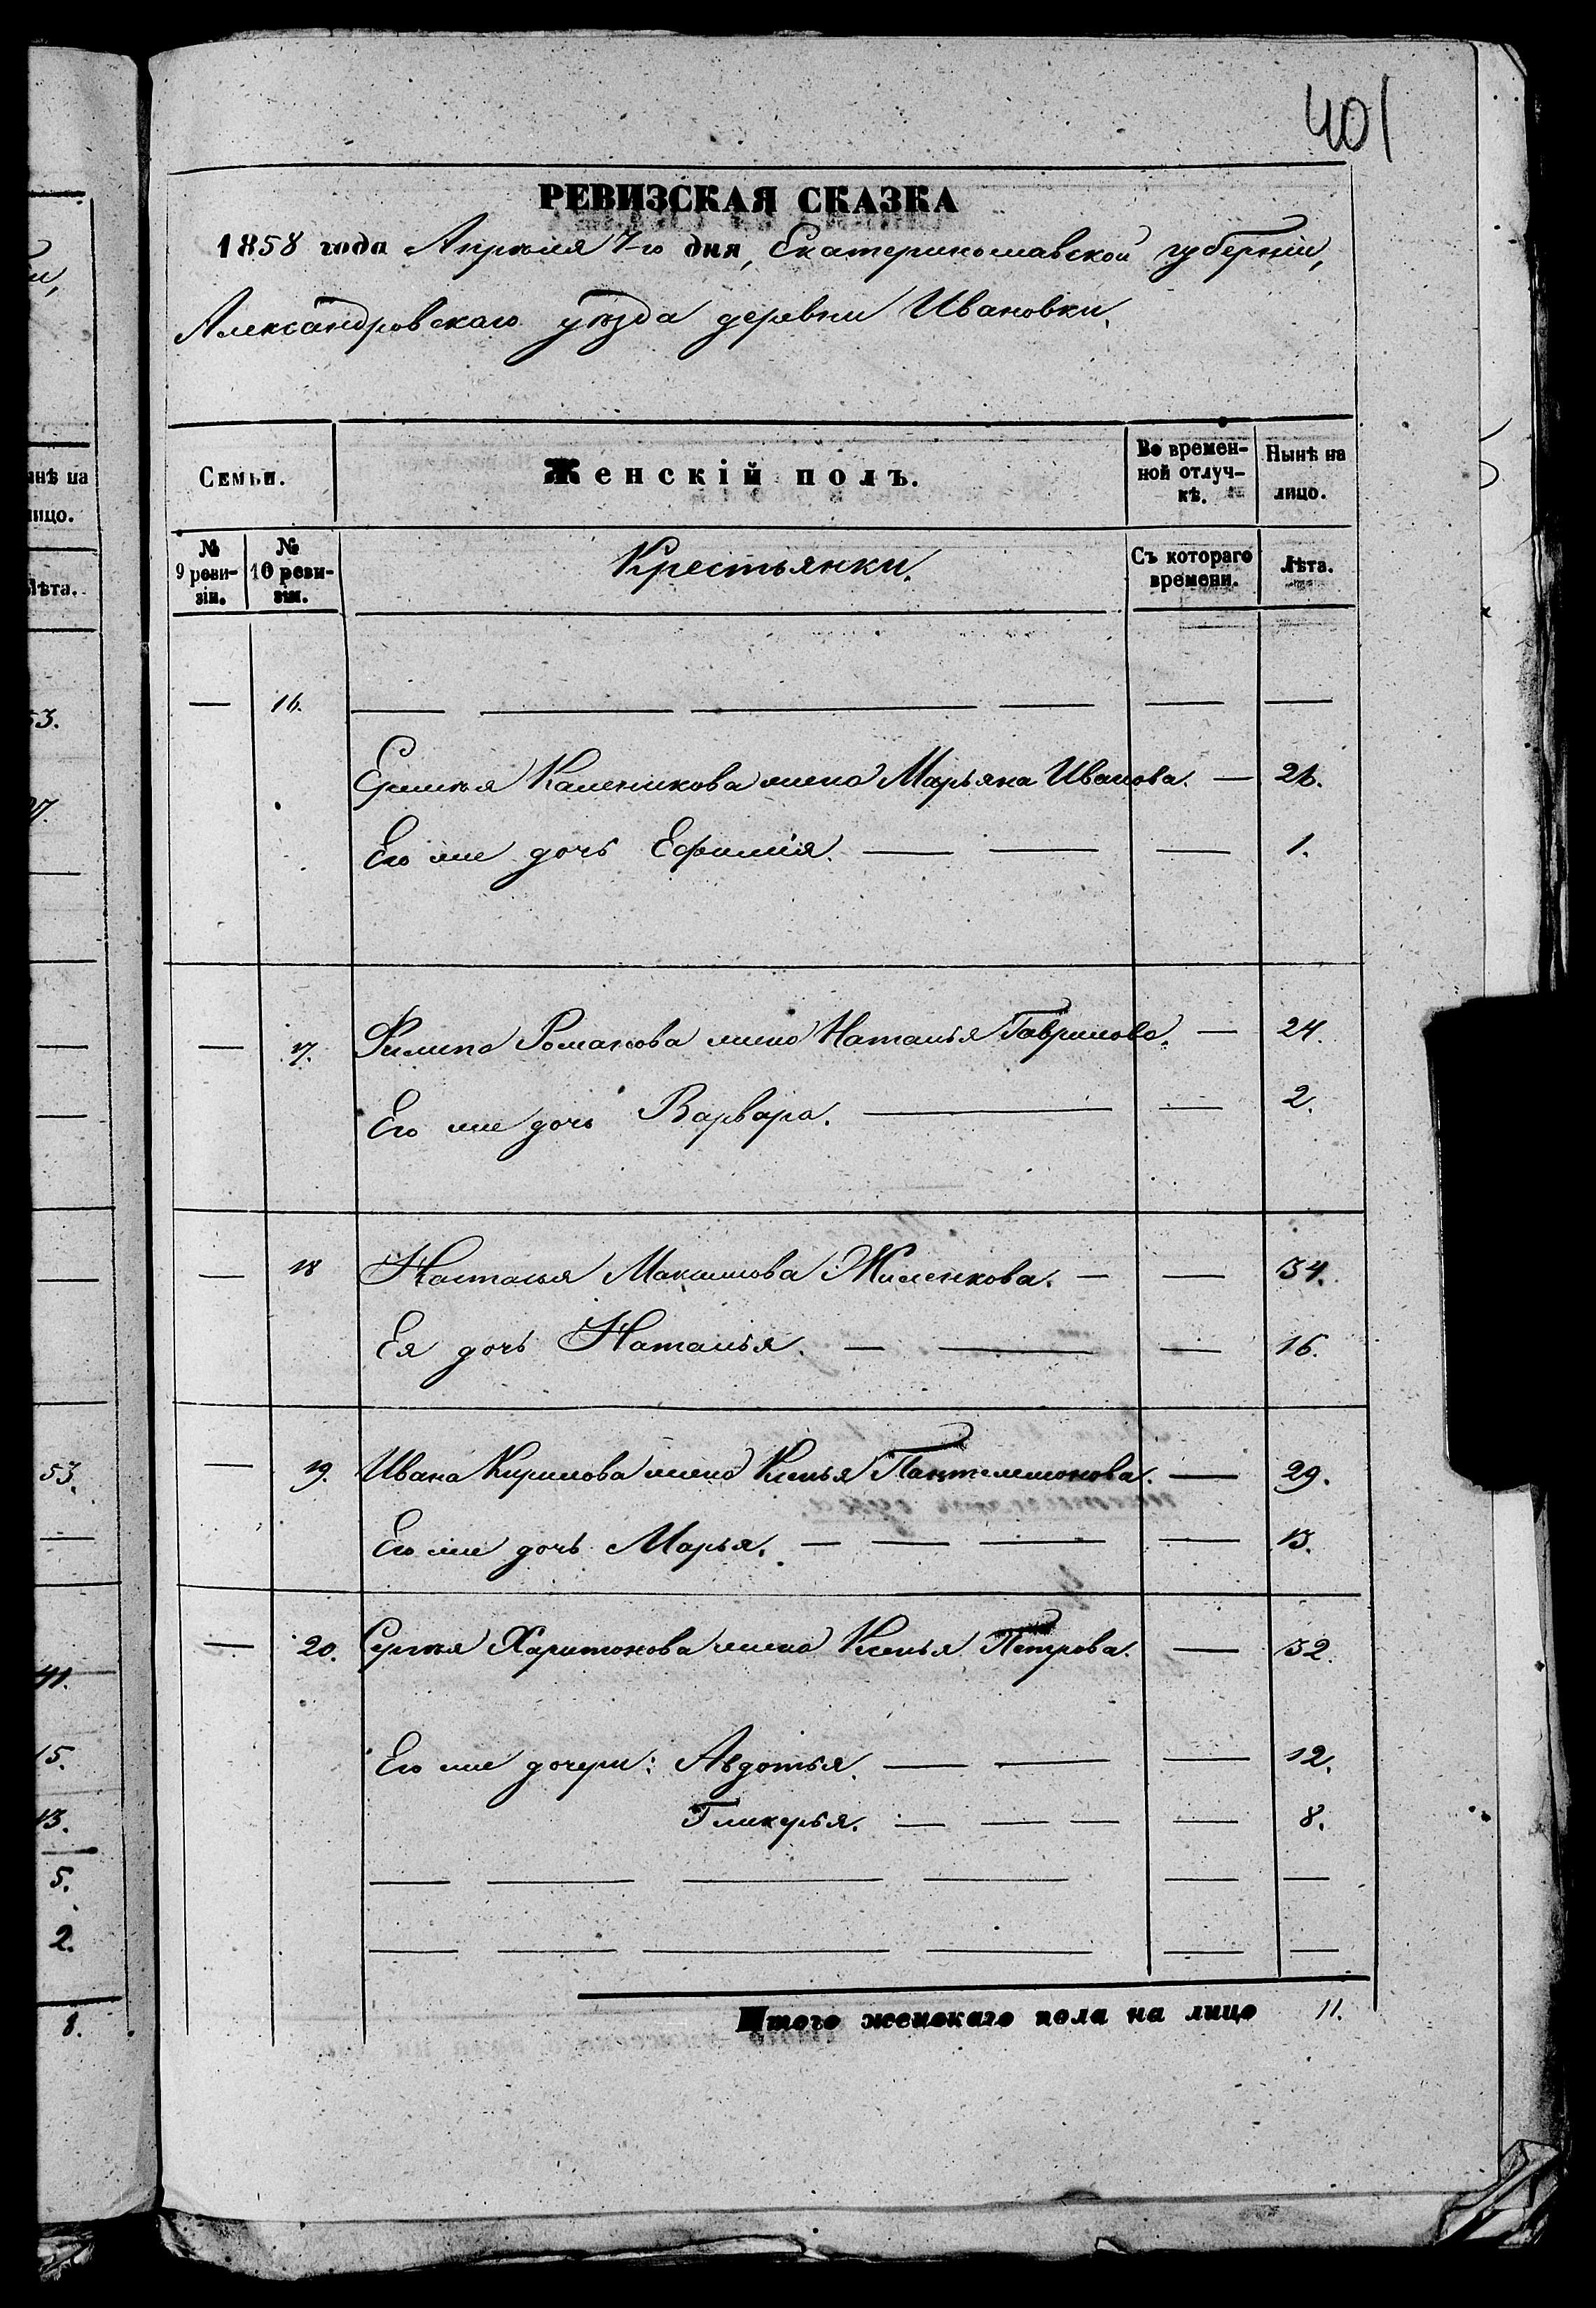 401
РЕВИЗСКАЯ СКАЗКА
1858 года Апрѣля 7-го дня, Екатеринославской губерніи,
Александровскаго уѣзда деревни Ивановки.
Семьи. Женскій полъ. Во времен-ной отлуч-кѣ. Нынѣ на лицо.
№ 9 реви-зіи. № 10 реви-зіи. Крестьянки. Съ котораго времени. Лѣта.
— 16. — — — — — —
Каленикова жена Марьяна Иванова. — 26.
Его же дочь Ефимія. — — — 1.
— 17. Филипа Романова жена Наталья Гаврилова. — 24.
Его же дочь Варвара. — — 2.
— 18 Настасья Максимова Жиленкова. — — 34.
Ея дочь Наталья. — — — 16.
— 19. Ивана Кирилова жена Ксенья Пантелимонова. — 29.
Его же дочь Марья. — — — — 13.
— 20. Сергѣя Харитонова жена Ксенья Петрова. — 32.
Его же дочери: Авдотья. — — — 12.
Гликерья. — — — — 8.
— — — — — —
— — — — — —
Итого женскаго пола на лицо 11.
53.
41.
15.
13.
5.
2.
8.